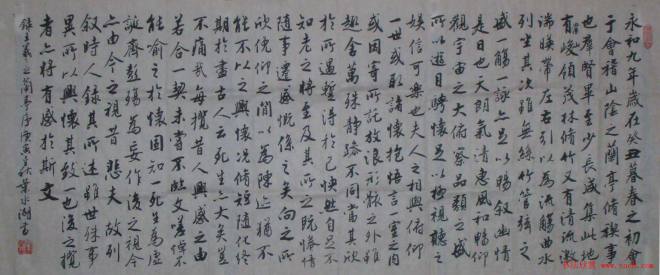 永和九年歲在癸丑暮春之初會
于會稽山陰之蘭亭脩禊事
也群賢畢至少長咸集此地
有崇山峻領茂林脩竹又有清流激
湍暎帶左右引以為流觴曲水
列坐其次雖無絲竹管弦之
盛一觴一詠亦足以暢敘幽情
是日也天朗氣清惠風和暢仰
觀宇宙之大俯察品類之盛
所以遊目騁懷足以極視聽之
娛信可樂也夫人之相與俯仰
一世或取諸懷抱悟言一室之內
或因寄所託放浪形骸之外雖
趣舍萬殊靜躁不同當其欣
於所遇暫得於己快然自足不
知老之將至及其所之既惓情
隨事遷感慨係之矣向之所
欣俛仰之間以為陳迹猶不
能不以之興懷況脩短隨化終
期於盡古人云死生亦大矣豈
不痛哉每攬昔人興感之由
若合一契未嘗不臨文嗟悼不
能喻之於懷固知一死生為虛
誕齊彭殤為妄作後之視今
亦由今之視昔悲夫故列
敘時人錄其所述雖世殊事
異所以興懷其致一也後之攬
者亦將有感於斯文
錄王羲之蘭亭序庚寅秋葉水湖書